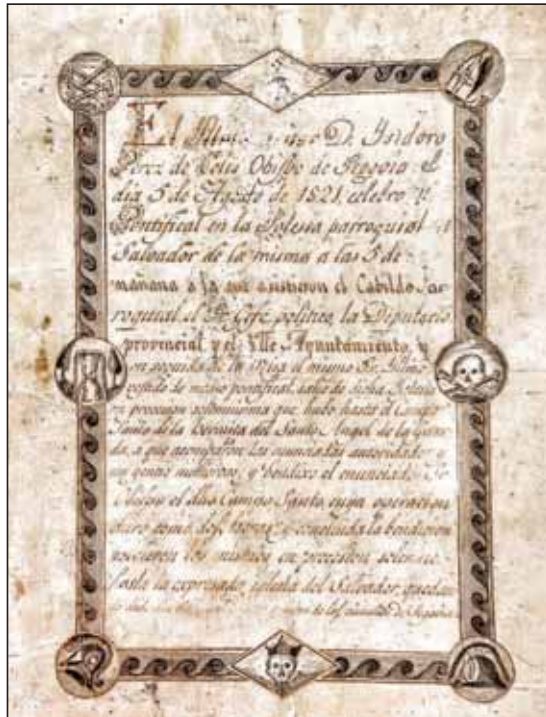 El D. Ysidoro
Perez de Celis Obispo de Segovia el
dia 5 de Agosto de 1821, celebro
Pontifical en la Yglesia parroquial
Salvador de la misma a las 5 de
mañana a la que asistieron el Cabildo
roquial, el Gefe politico, la Diputacio
provincial y el Ylle. Ayuntamiento, y
en seguida de la Misa el mismo Sr. Yllmo
vestido de medio pontifical, salio de dicha Yglesia
en procesion solemnisima que hubo hasta el Campo
Santo de la Hermita del Santo Angel de la Guar
da, a que acompañaron las enunciadas autoridades y
un gentio numeroso, y bendixo el enunciado Sr.
Obispo el dho Campo Santo, cuya operacion
duro como dos horas y concluida la bendicion
volvieron los mismos en procesion solemne
hasta la expresada iglesia del Salvador, quedan
de España